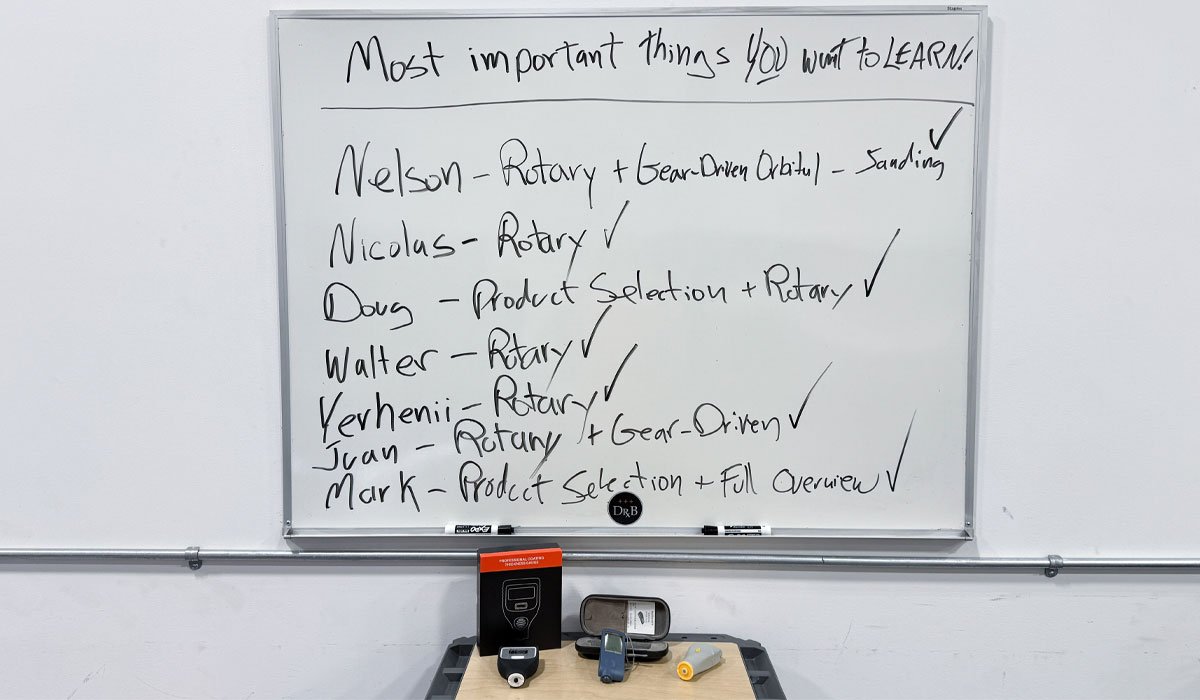 Staples
Most important things YOU want to LEARN!
Nelson - Rotary + Gear-Driven Orbital - Sanding ✓
Nicolas - Rotary ✓
Doug - Product Selection + Rotary ✓
Walter - Rotary ✓
Yerhenii - Rotary ✓
Juan - Rotary + Gear-Driven ✓
Mark - Product Selection + Full Overview ✓
DRB
EXPO
PROFESSIONAL COATING
THICKNESS GAUGE